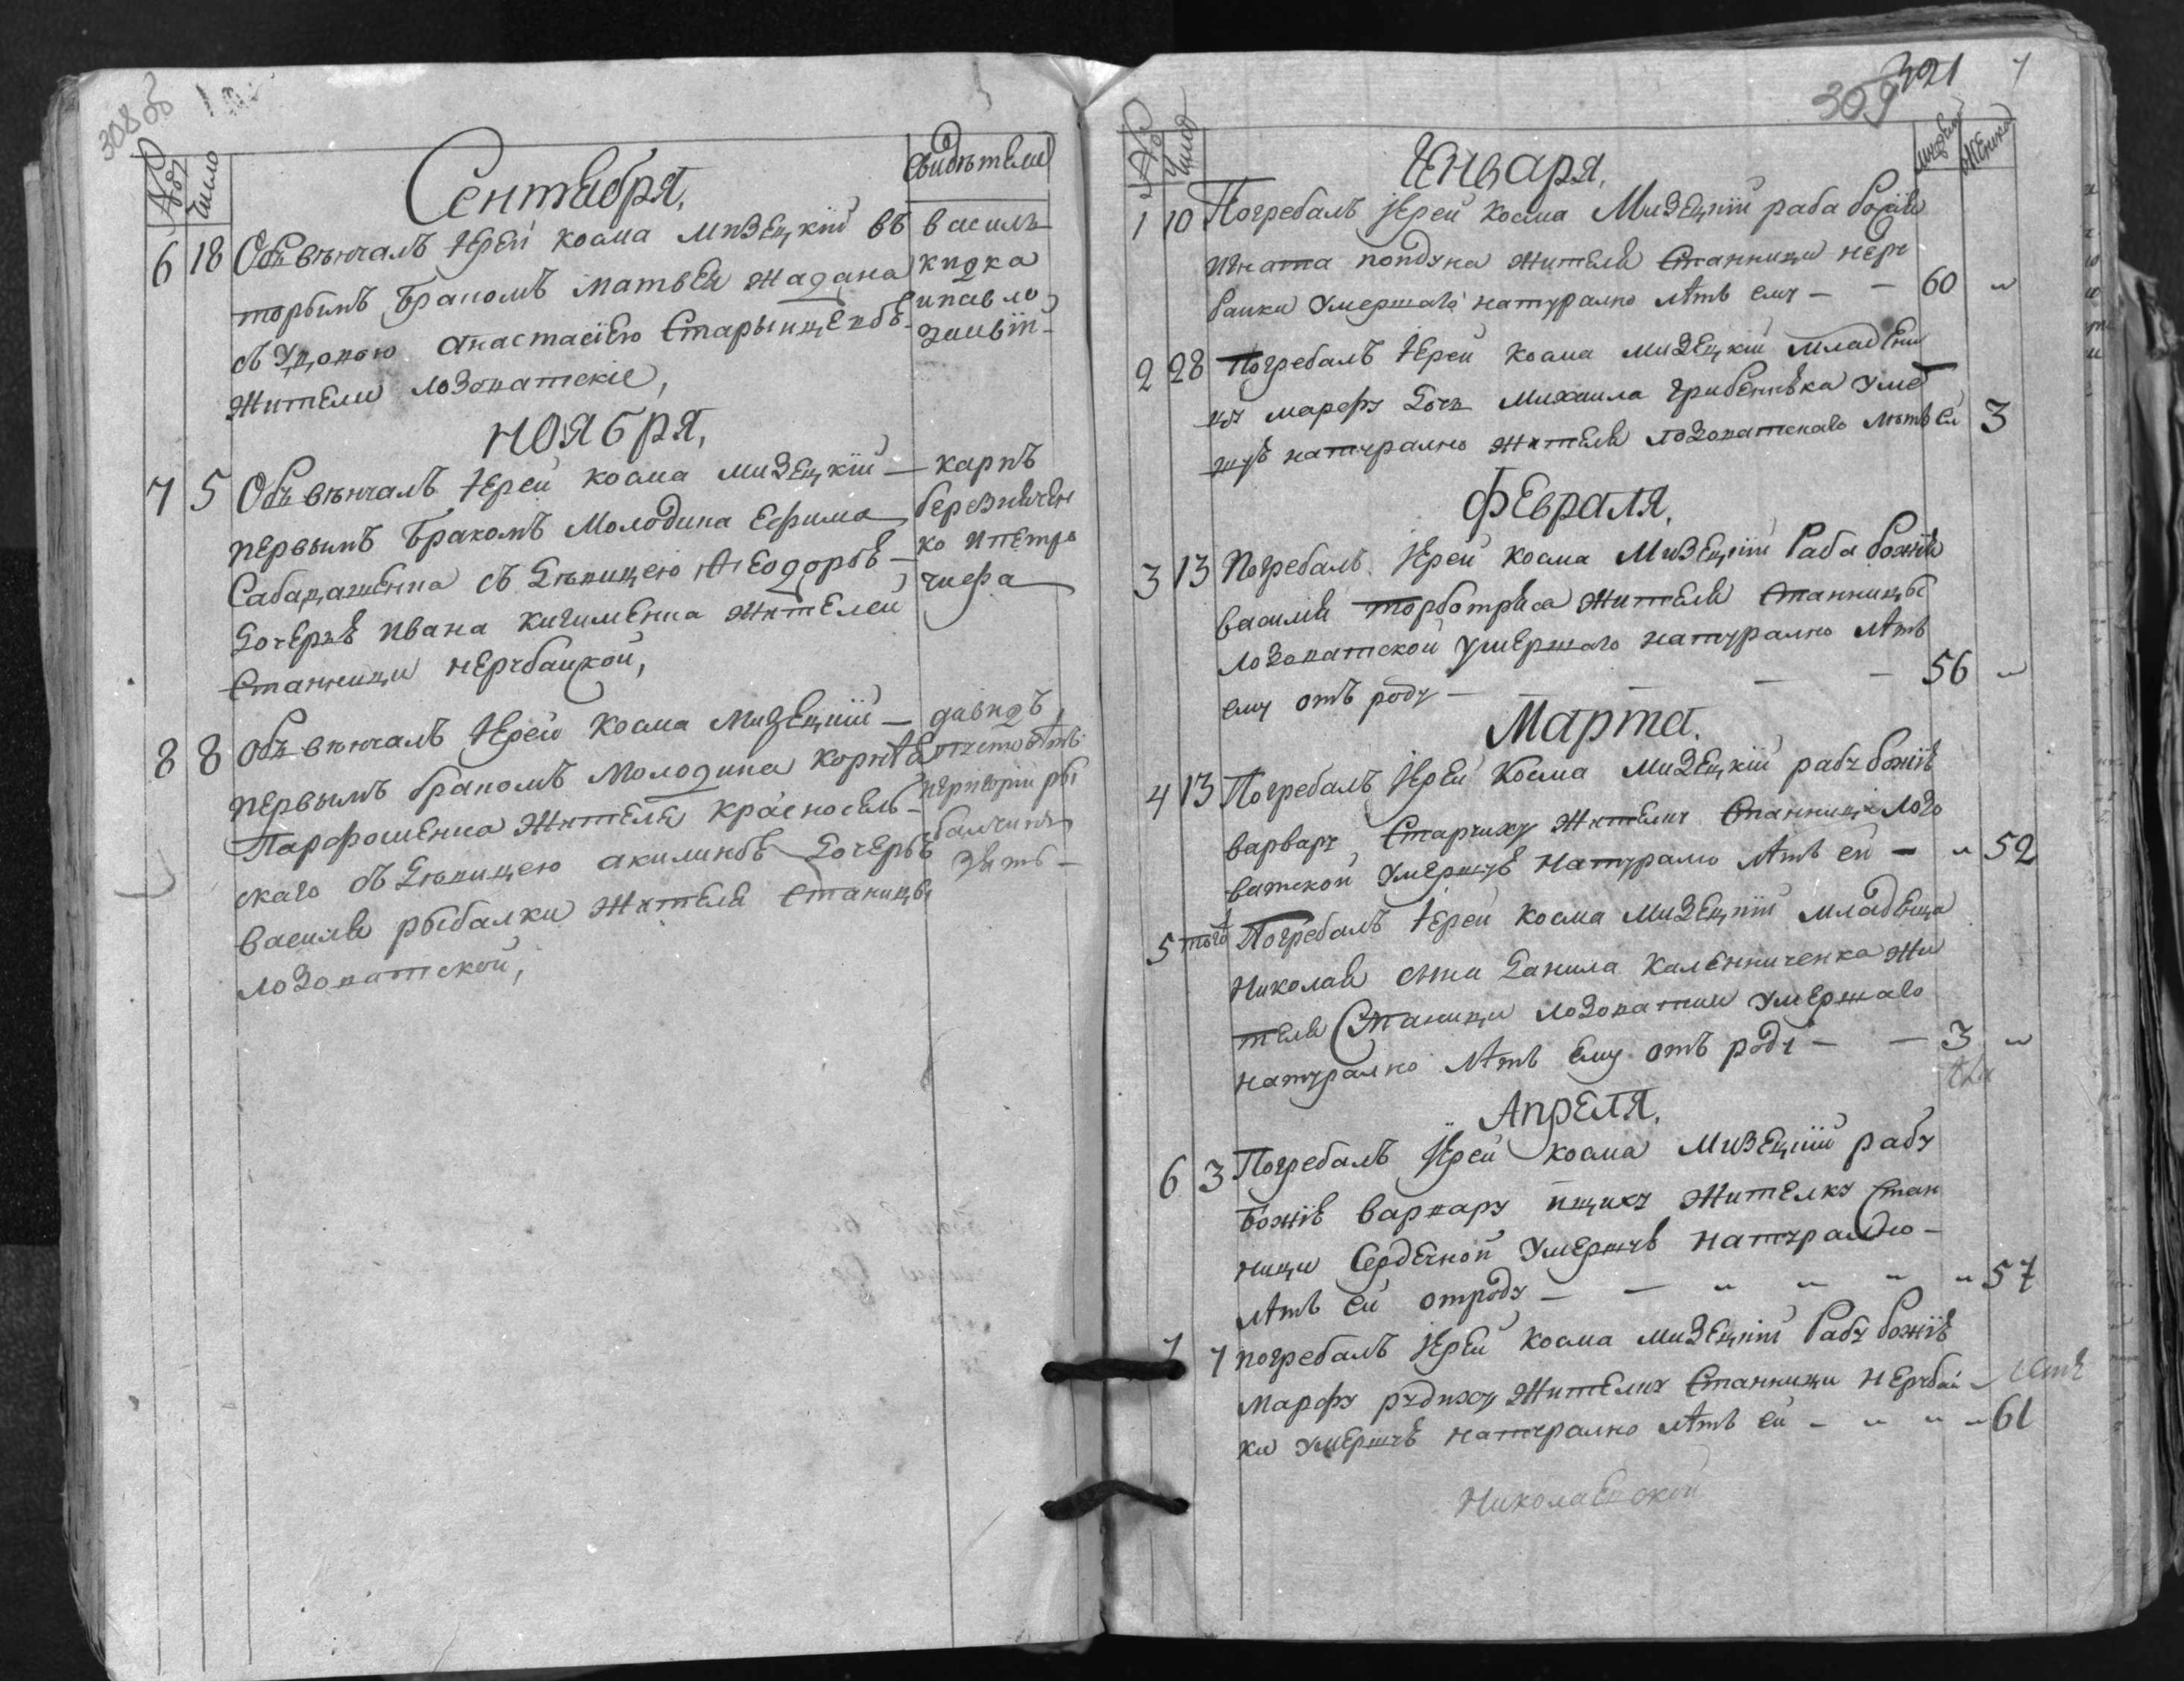 308 об
№
Число
Сентября,
Свидѣтели
6 18 Объвѣнчалъ Іерей Косма Мизецкій въ
торымъ бракомъ Матвея Жадана
съ Удовою Анастасіею Старынцевъ-
жители Лозоватскіе,
Василъ
Кидка
и Павло
Ноября,
7 5 Объвѣнчалъ Іерей Косма Мизецкій —
первымъ бракомъ Молодика Ефима
Сабадашенка съ Дѣвицею Ѳеодоров-
Дочерѣ Ивана Кичименка жителей
Станници Нерубайкой,
Карпъ
Березниченк
ко и Петро
Чиефа
8 8 Объвѣнчалъ Іерей Косма Мизецкій —
первымъ бракомъ Молодика Корнѣ
Парфошенка жителя Красносель-
скаго съ Дѣвицею Акилиною Дочерѣ
Василя Рыбалки жителя Станицы
Лозоватской,
Давидъ
и Григорій Ры
балчинъ
Зять —
309 321
№
Число
Мужеск
Женска
Генваря,
1 10 Погребалъ Іерей Косма Мизецкій раба божія
Игната жителя Станници Неру
байки Умершаго натурално лѣтъ ему — — 60 „
2 28 Погребалъ Іерей Косма Мизецкій младен
цу Марфу Дочь Михаила Грибеника Умер
шую натурално жителя Лозоватскаго лѣтъ ей 3
Февраля,
3 13 Погребалъ Іерей Косма Мизецкій Раба божія
Василия Торботряса жителя Станницы
Лозоватской умершаго натурално лѣтъ
ему отъ роду — — — — — 56 „
Марта,
4 13 Погребалъ Іерей Косма Мизецкій рабу божію
Варвару Старчиху жителку Станници Лозо
ватской Умершую Натурално лѣтъ ей — „ 52
5 того Погребалъ Іерей Косма Мизецкій младенца
Николая сына Данила Каленниченка жи
теля Станици Лозоватки умершаго
натурално лѣтъ ему отъ роду — — 3 „
Апреля,
6 3 Погребалъ Іерей Косма Мизецкій рабу
божію Варвару жителку Стан
ници Сердечной Умершую натурално —
лѣтъ ей отроду — — „ „ „ „ 57
7 7 Погребалъ Іерей Косма Мизецкій Рабу божію
Марфу Рудиху жителку Станници Нерубай
ки умершую натурално лѣтъ ей — „ „ „ 61
Николаевской